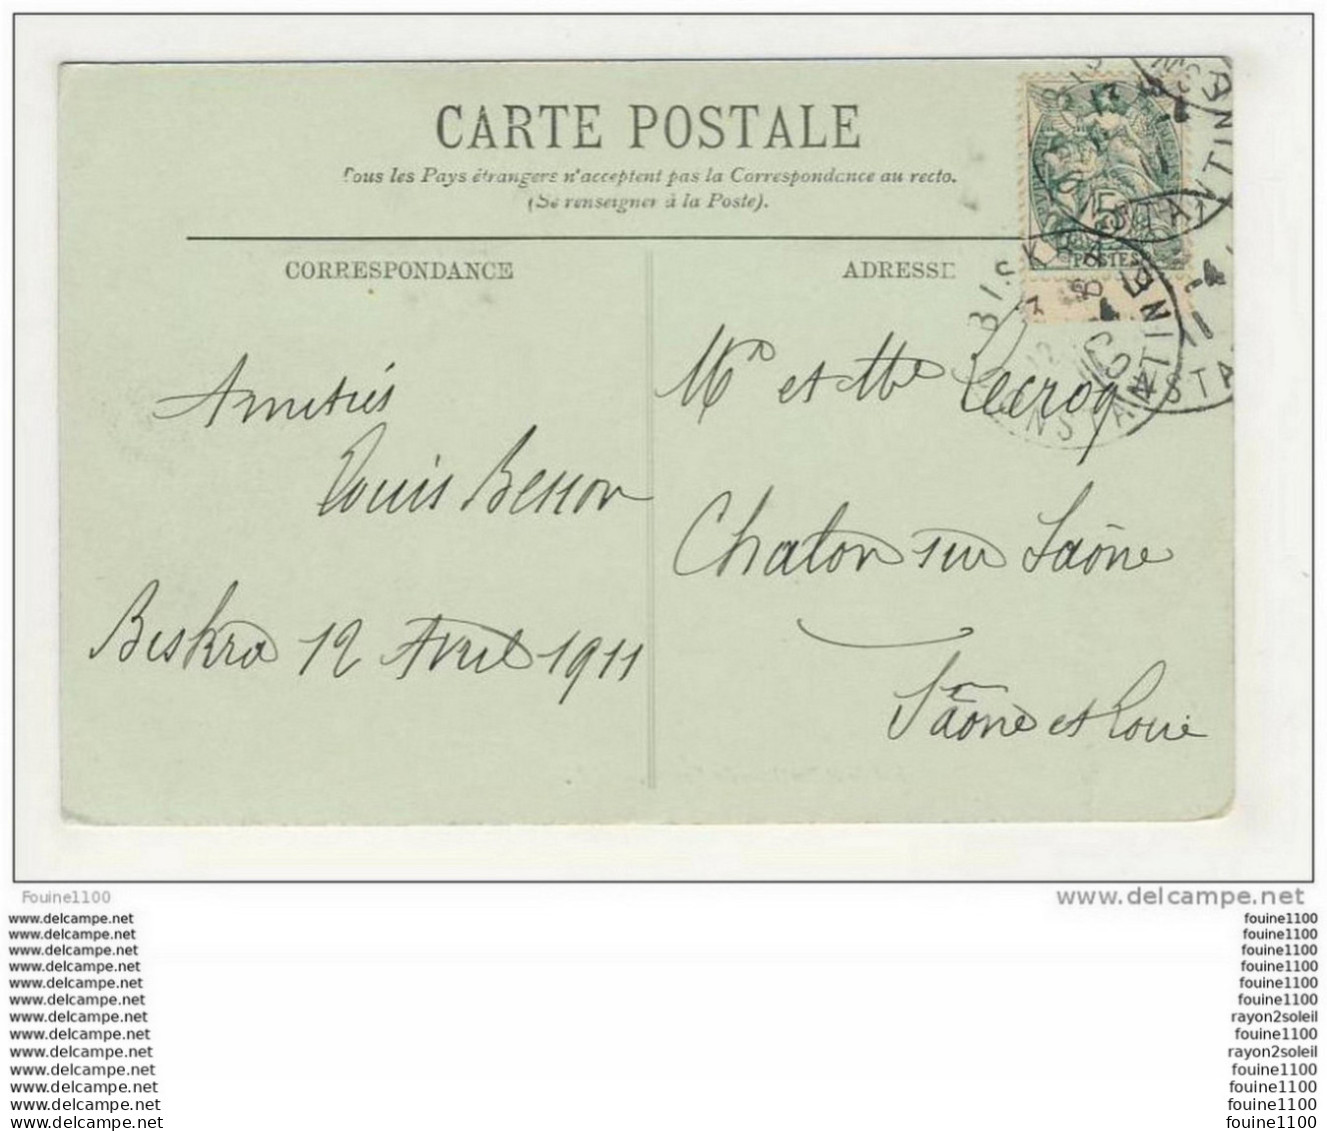 CARTE POSTALE
Tous les Pays étrangers n'acceptent pas la Correspondance au recto.
(Se renseigner à la Poste).
CORRESPONDANCE
ADRESSE
POSTES
BISKRA
CONSTANTINE
Amitiés
Louis Besson
Biskra 12 Avril 1911
Mr et Mme Lecroq
Chalon sur Saône
Saône et Loire
Fouine1100
www.delcampe.net
www.delcampe.net
www.delcampe.net
www.delcampe.net
www.delcampe.net
www.delcampe.net
www.delcampe.net
www.delcampe.net
www.delcampe.net
www.delcampe.net
www.delcampe.net
www.delcampe.net
www.delcampe.net
www.delcampe.net
fouine1100
fouine1100
fouine1100
fouine1100
fouine1100
fouine1100
rayon2soleil
fouine1100
rayon2soleil
fouine1100
fouine1100
fouine1100
fouine1100